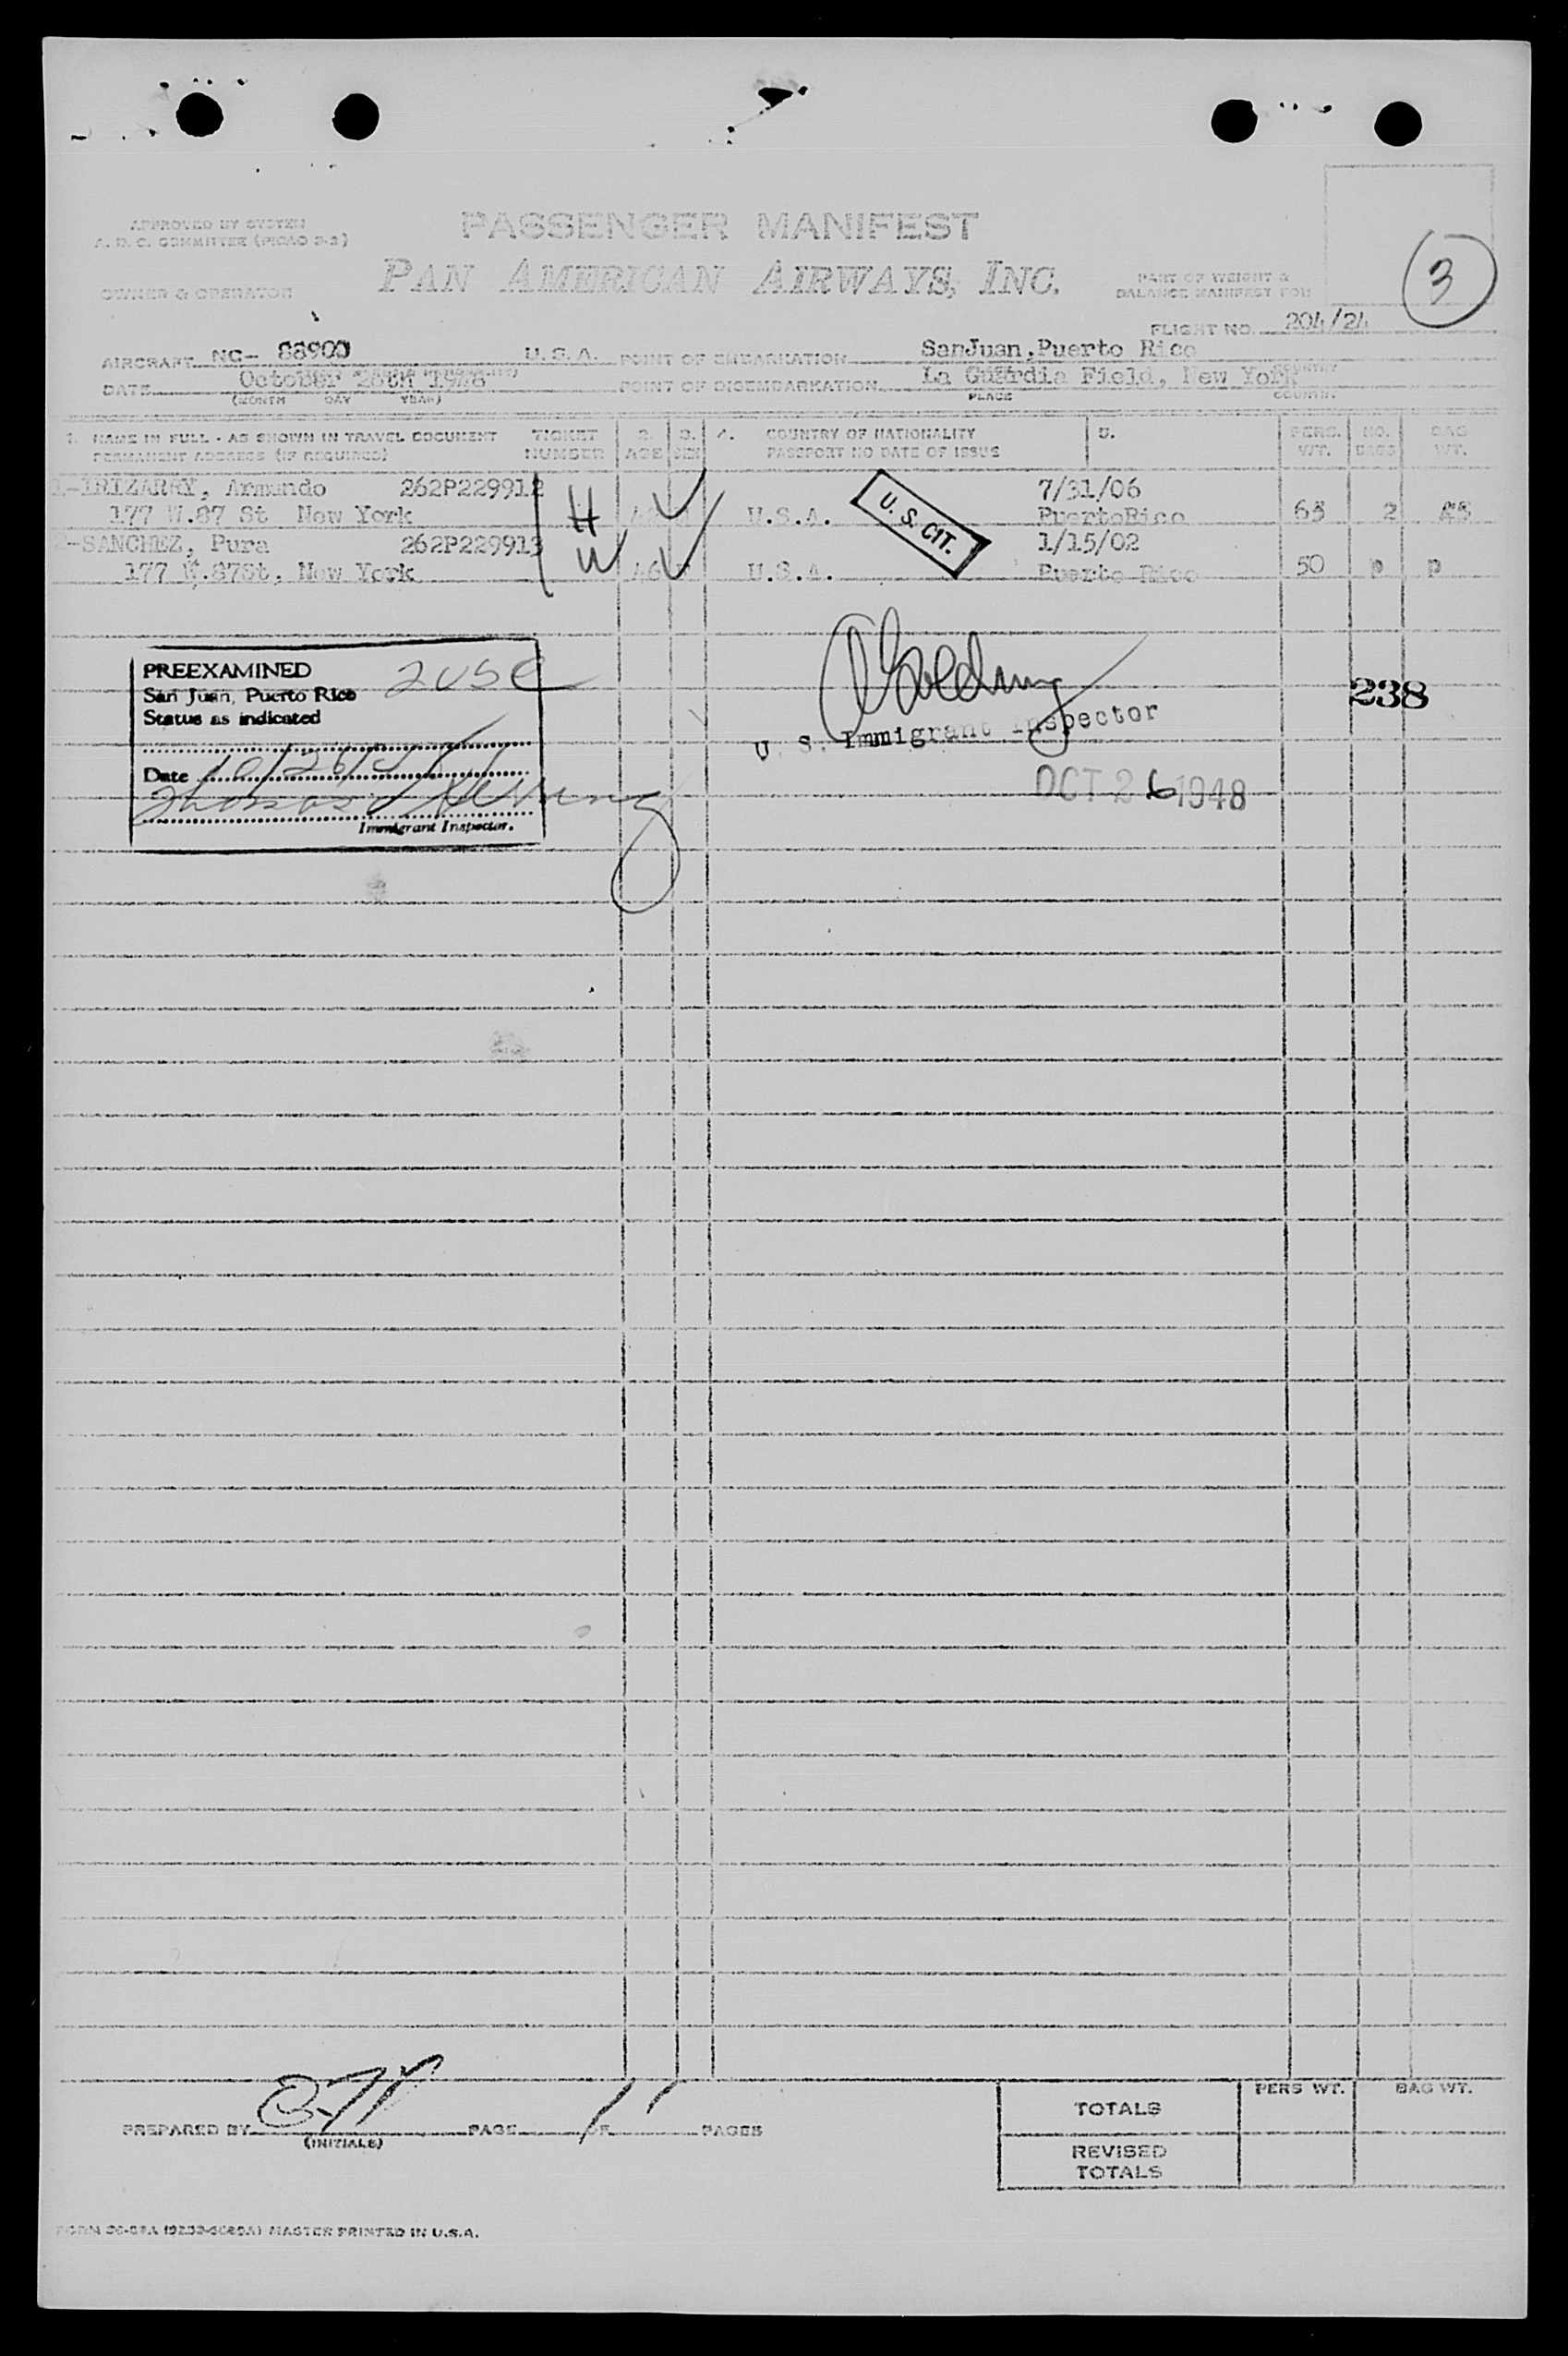 APPROVED BY SYSTEM
A. D. C. COMMITTEE (PICAO 2-3)
PASSENGER MANIFEST
PAN AMERICAN AIRWAYS, INC.
OWNER & OPERATOR
PART OF WEIGHT &
BALANCE MANIFEST FOR
3
FLIGHT NO. 204/24
AIRCRAFT NC- 88900 U.S.A. POINT OF EMBARKATION SanJuan, Puerto Rico
DATE October 26th 1948 POINT OF DISEMBARKATION La Guardia Field, New York
(MONTH DAY YEAR) PLACE COUNTRY
1. NAME IN FULL - AS SHOWN IN TRAVEL DOCUMENT TICKET 2. 3. 4. COUNTRY OF NATIONALITY 5. PERS. NO. BAG
PERMANENT ADDRESS (IF REQUIRED) NUMBER AGE SEX PASSPORT NO DATE OF ISSUE WT. BAGS WT.
1-IRIZARRY, Armando 262P229912 7/31/06
177 W.87 St New York H U.S.A. U. S. CIT. PuertoRico 63 2
-SANCHEZ, Pura 262P229913 1/15/02
177 W.87St, New York W 46 U.S.A. Puerto Rico 50 p p
PREEXAMINED 2 USC
San Juan, Puerto Rico
Status as indicated
Date 10/26/
Thomas
Immigrant Inspector.
Golding
U. S. Immigrant Inspector
OCT 26 1948
238
PREPARED BY PAGE OF PAGES
(INITIALS)
PERS WT. BAG WT.
TOTALS
REVISED
TOTALS
MASTER PRINTED IN U.S.A.